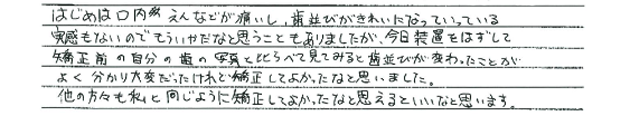 はじめは口内炎んなどが痛いし、歯並びがきれいになっていっている
実感もないのでもういやだなと思うこともありましたが、今日装置をはずして
矯正前の自分の歯の写真と比らべて見てみると歯並びが変わったことが
よく分かり大変だったけれど矯正してよかったなと思いました。
他の方々も私と同じように矯正してよかったなと思えるといいなと思います。